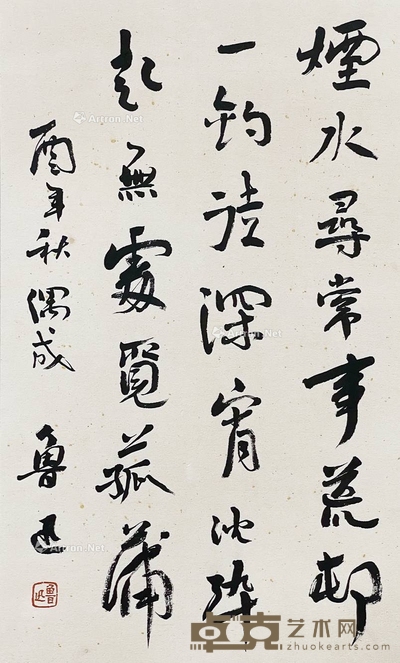 煙水尋常事荒邨
一釣徒深宵沈醉
起無處覓菰蒲
酉年秋偶成 魯迅
魯迅
Artron.Net
Artron.Net
Artron.Net
Artron.Net
卓克艺术网
www.zhuokearts.com